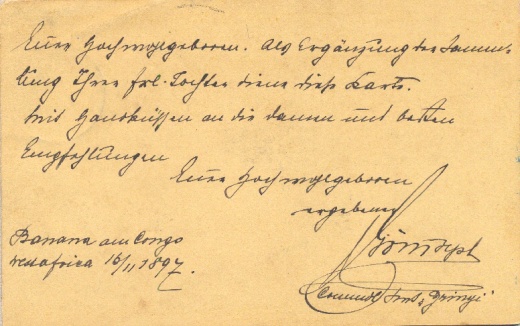 Euer Hochwolgeboren. Als Ergänzung der Samm-
lung Ihrer frl. Tochter diene diese Karte.
Mit Handküssen an die Damen und besten
Empfehlungen
Euer Hochwolgeboren
ergebener
Banana am Congo
Westafrica 16/11 1897.